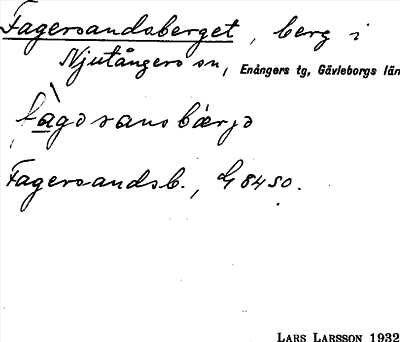 Fagersandsberget, berg i
Njutångers sn, Enångers tg, Gävleborgs län
fagəsansbærjə
Fagersandsb., G 84 SO.
LARS LARSSON 1932